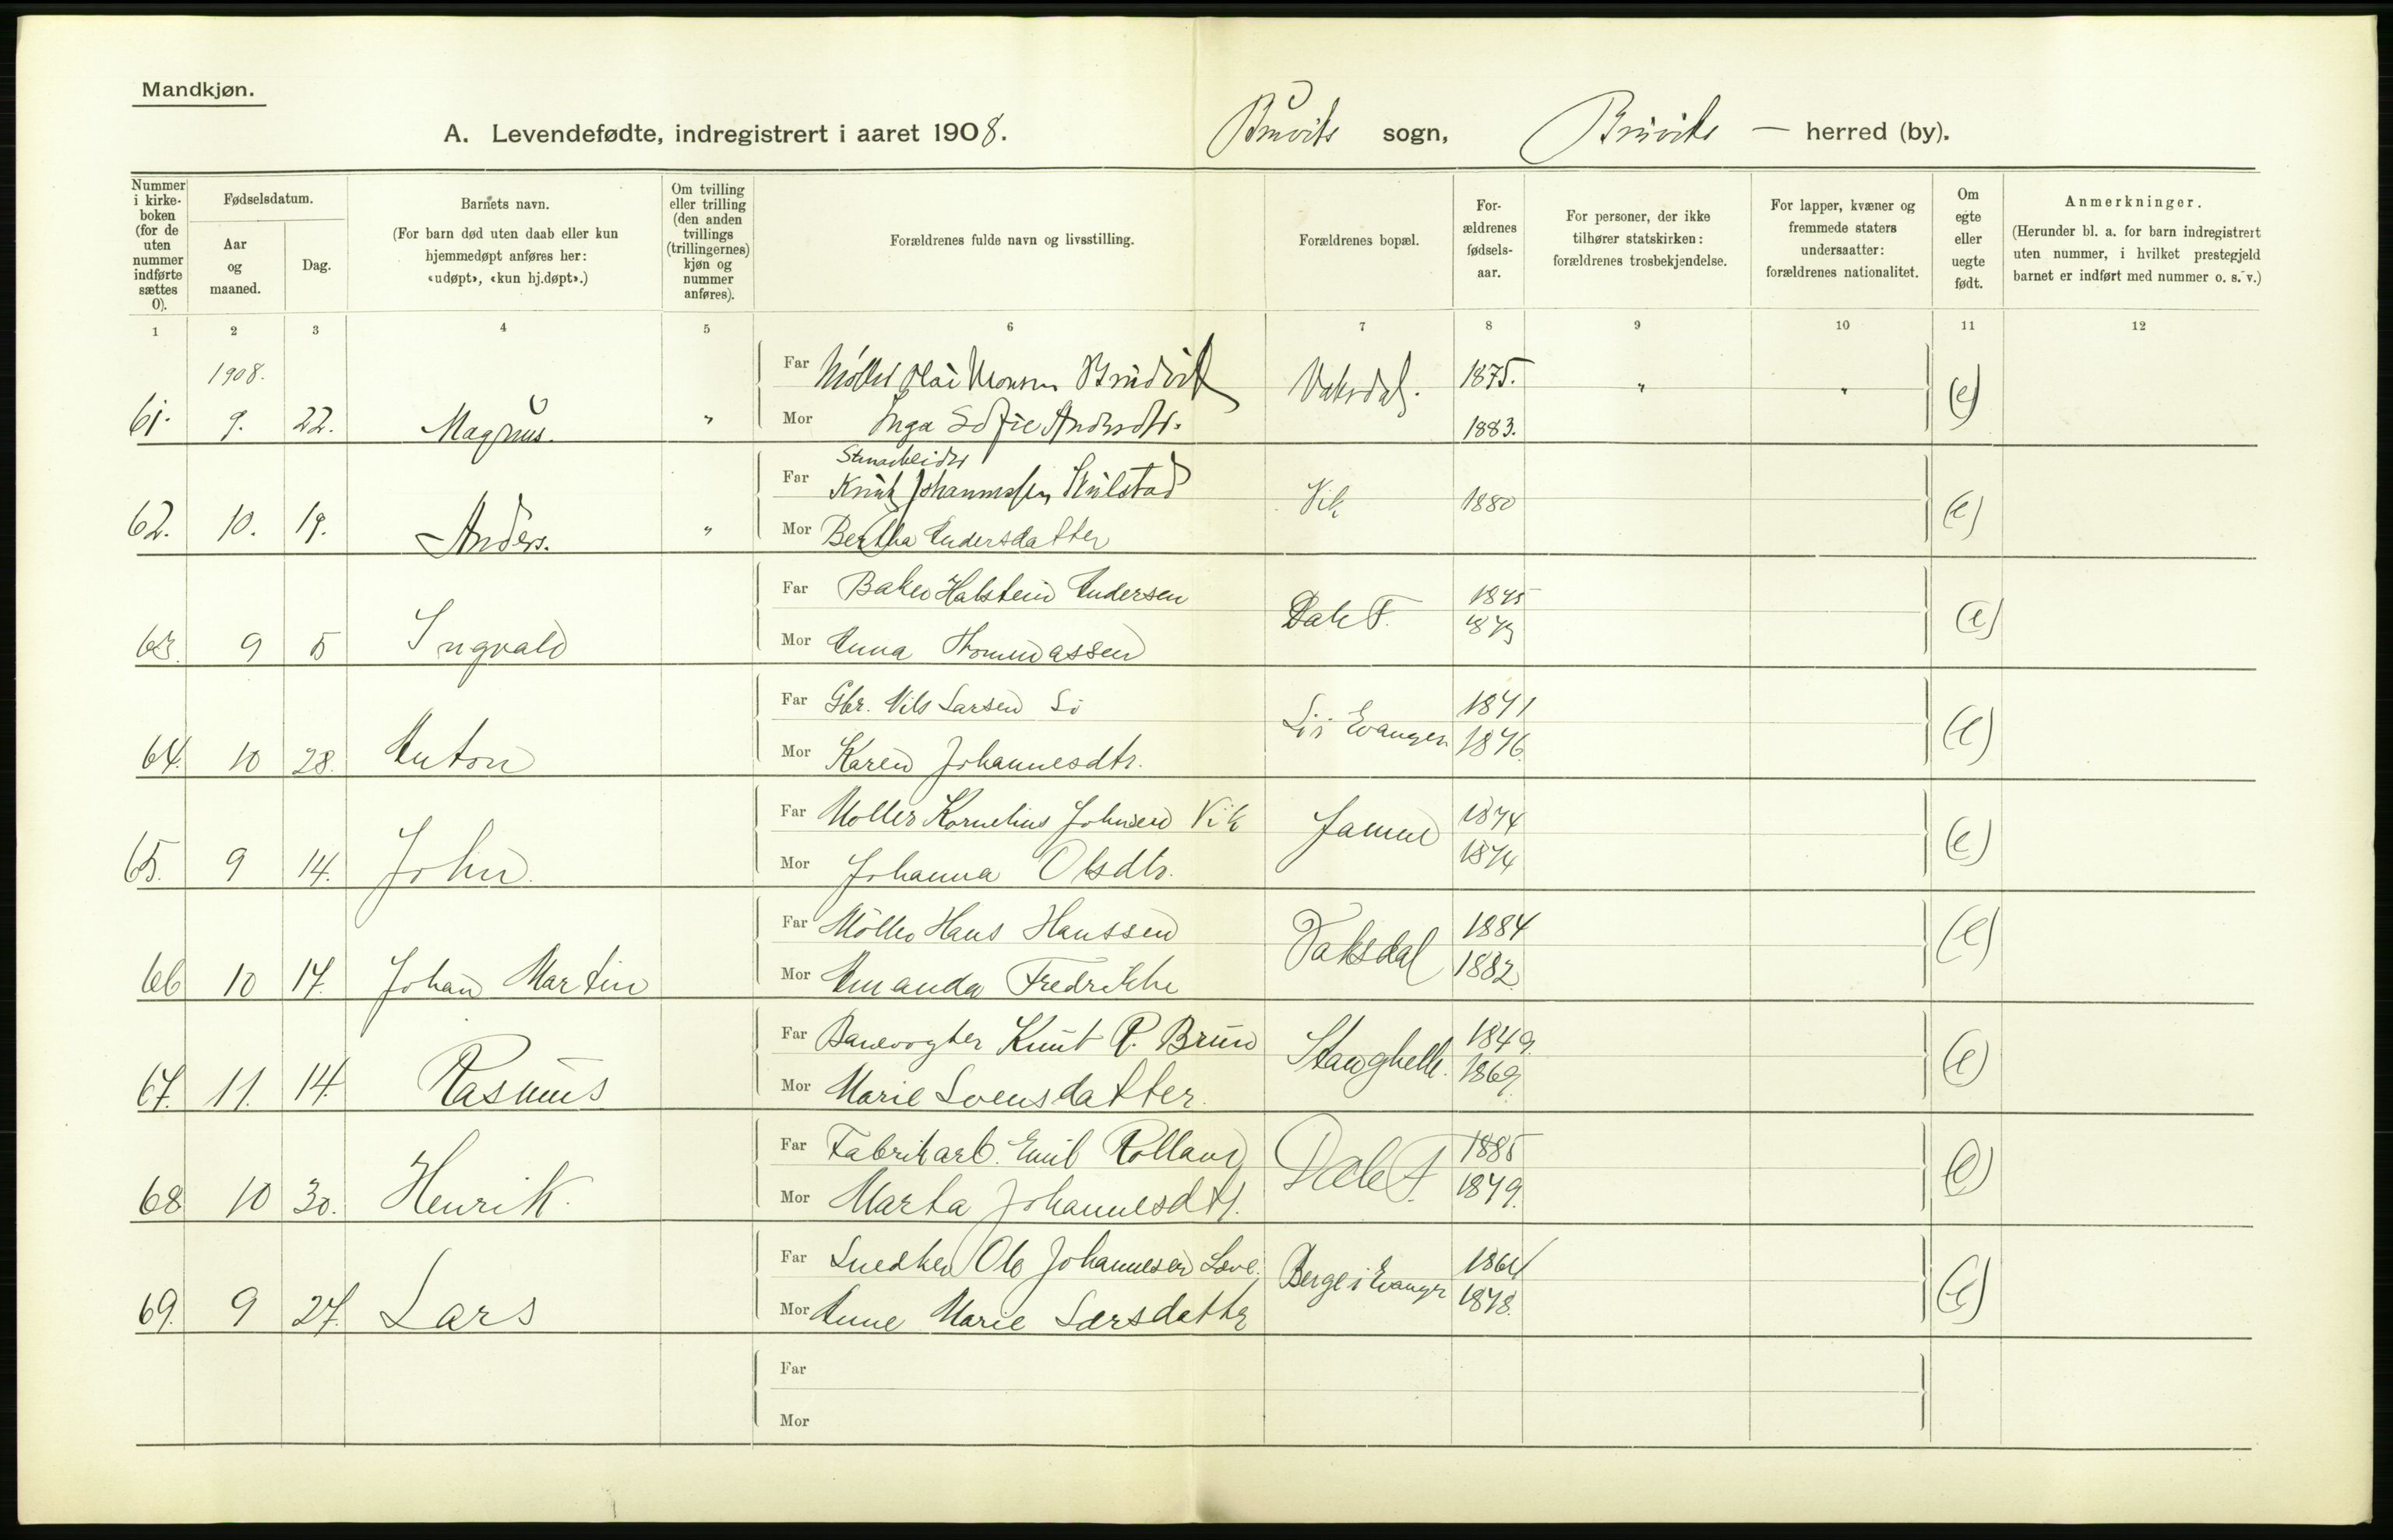 Mandkjøn.
A. Levendefødte, indregistrert i aaret 1908. Bruvik sogn, Bruvik — herred (by).
Nummer i kirke-boken (for de uten nummer indførte sættes 0).
Fødselsdatum.
Aar og maaned.
Dag.
Barnets navn.
(For barn død uten daab eller kun hjemmedøpt anføres her: «udøpt», «kun hj.døpt».)
Om tvilling eller trilling (den anden tvillings (trillingernes) kjøn og nummer anføres).
Forældrenes fulde navn og livsstilling.
Forældrenes bopæl.
For-ældrenes fødsels-aar.
For personer, der ikke tilhører statskirken: forældrenes trosbekjendelse.
For lapper, kvæner og fremmede staters undersaatter: forældrenes nationalitet.
Om egte eller uegte født.
Anmerkninger.
(Herunder bl. a. for barn indregistrert uten nummer, i hvilket prestegjeld barnet er indført med nummer o. s. v.)
1 2 3 4 5 6 7 8 9 10 11 12
1908.
Far Møller Olai Monsen Bruvik Vaksdal. 1875. " "
61. 9. 22. Magnus. " Mor Inga Sofie Andersdtr. 1883. (e)
Stenarbeider
Far Knut Johannessen Vik 1880
62. 10. 19. Anders. " Mor Bertha Andersdatter (e)
Far Halstein Andersen Dale F. 1875
63. 9 5 Ingvald Mor Anna Thommassen 1873 (e)
Far Gbr. Nils Larsen Li Li i Evanger 1871
64. 10 28. Anton Mor Karen Johannesdtr. 1876. (e)
Far Møller Kornelius Johnsen Vik 1874
65. 9 14. John. Mor Johanna Olsdtr. 1874 (e)
Far Møller Hans Hanssen Vaksdal 1884
66 10 17. Johan Martin Mor Amanda Fredrikke 1882. (e)
Far Banevogter Knut R. Brun Stanghelle. 1849.
67. 11. 14. Rasmus Mor Marie Svensdatter. 1869. (e)
Far Fabrikarb. Emil Rolland Dale F. 1885
68 10 30. Henrik. Mor Marta Johannesdtr. 1879. (e)
Far Snedker Ole Johannesen Berge i Evanger 1864
69. 9 27. Lars Mor Anne Marie Larsdatter 1878. (e)
Far
Mor